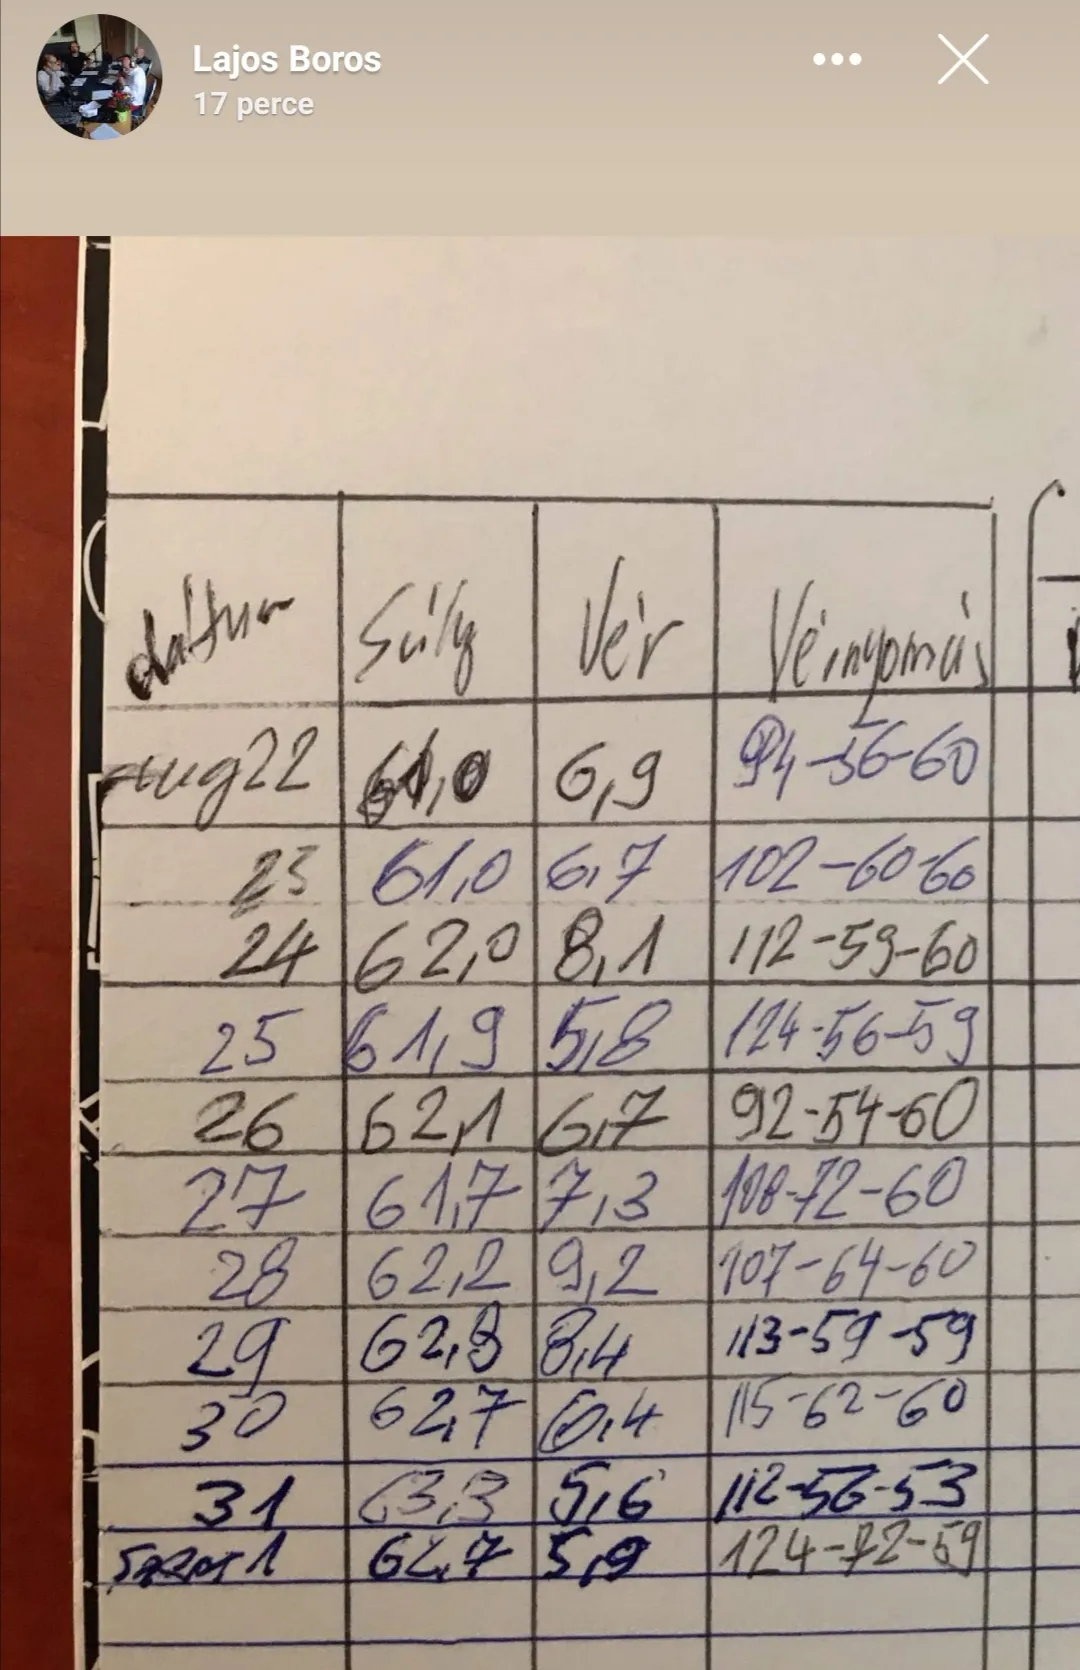 Lajos Boros
17 perce
dátum Súly Vér Vérnyomás
aug 22 61,0 6,9 94-56-60
23 61,0 6,7 102-60-60
24 62,0 8,1 112-59-60
25 61,9 5,8 124-56-59
26 62,1 6,7 92-54-60
27 61,7 7,3 108-72-60
28 62,2 9,2 107-64-60
29 62,8 8,4 113-59-59
30 62,7 6,4 115-62-60
31 63,3 5,6 112-56-53
Szept 1 62,7 5,9 124-72-59